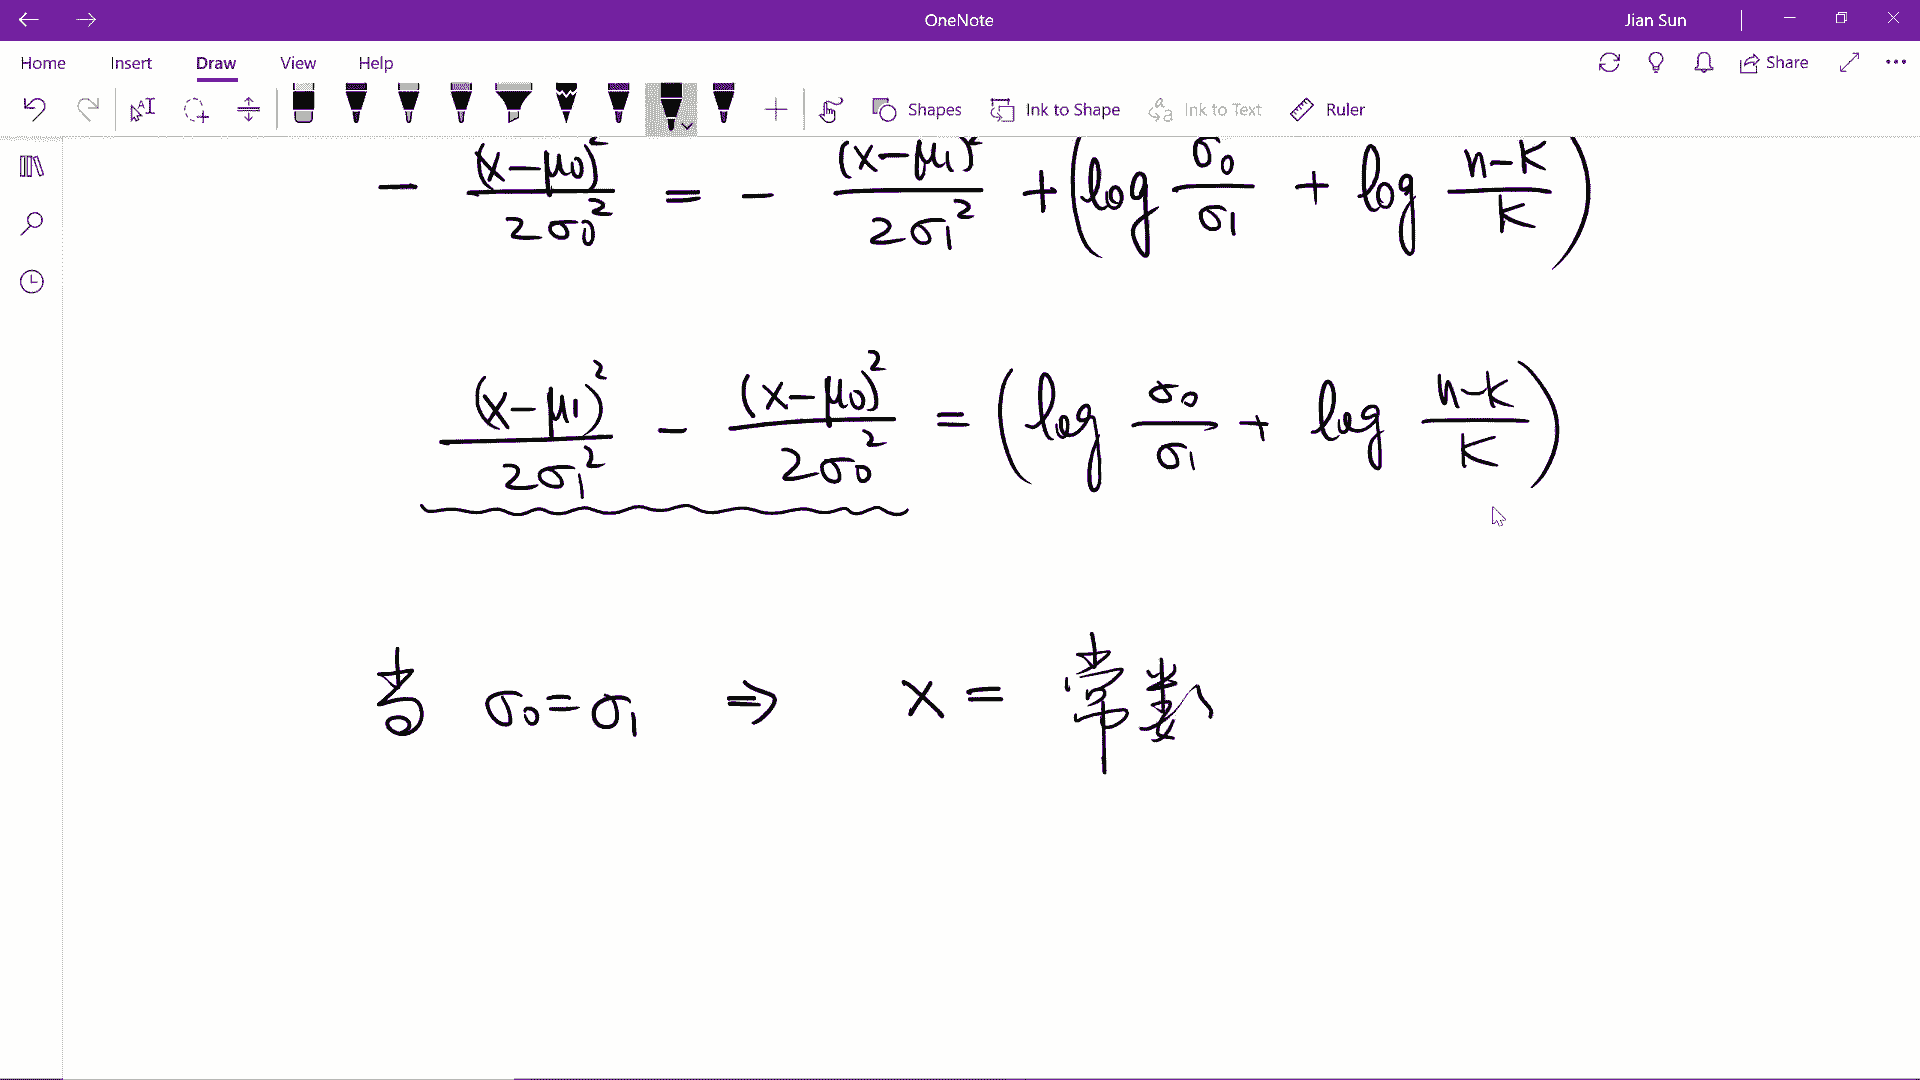 OneNote
Jian Sun
Home Insert Draw View Help
Share
Shapes Ink to Shape Ink to Text Ruler
- (x-μ0)² / 2σ0² = - (x-μ1)² / 2σ1² + (log σ0/σ1 + log n-k/k)
(x-μ1)² / 2σ1² - (x-μ0)² / 2σ0² = (log σ0/σ1 + log n-k/k)
当 σ0=σ1 ⇒ x = 常数